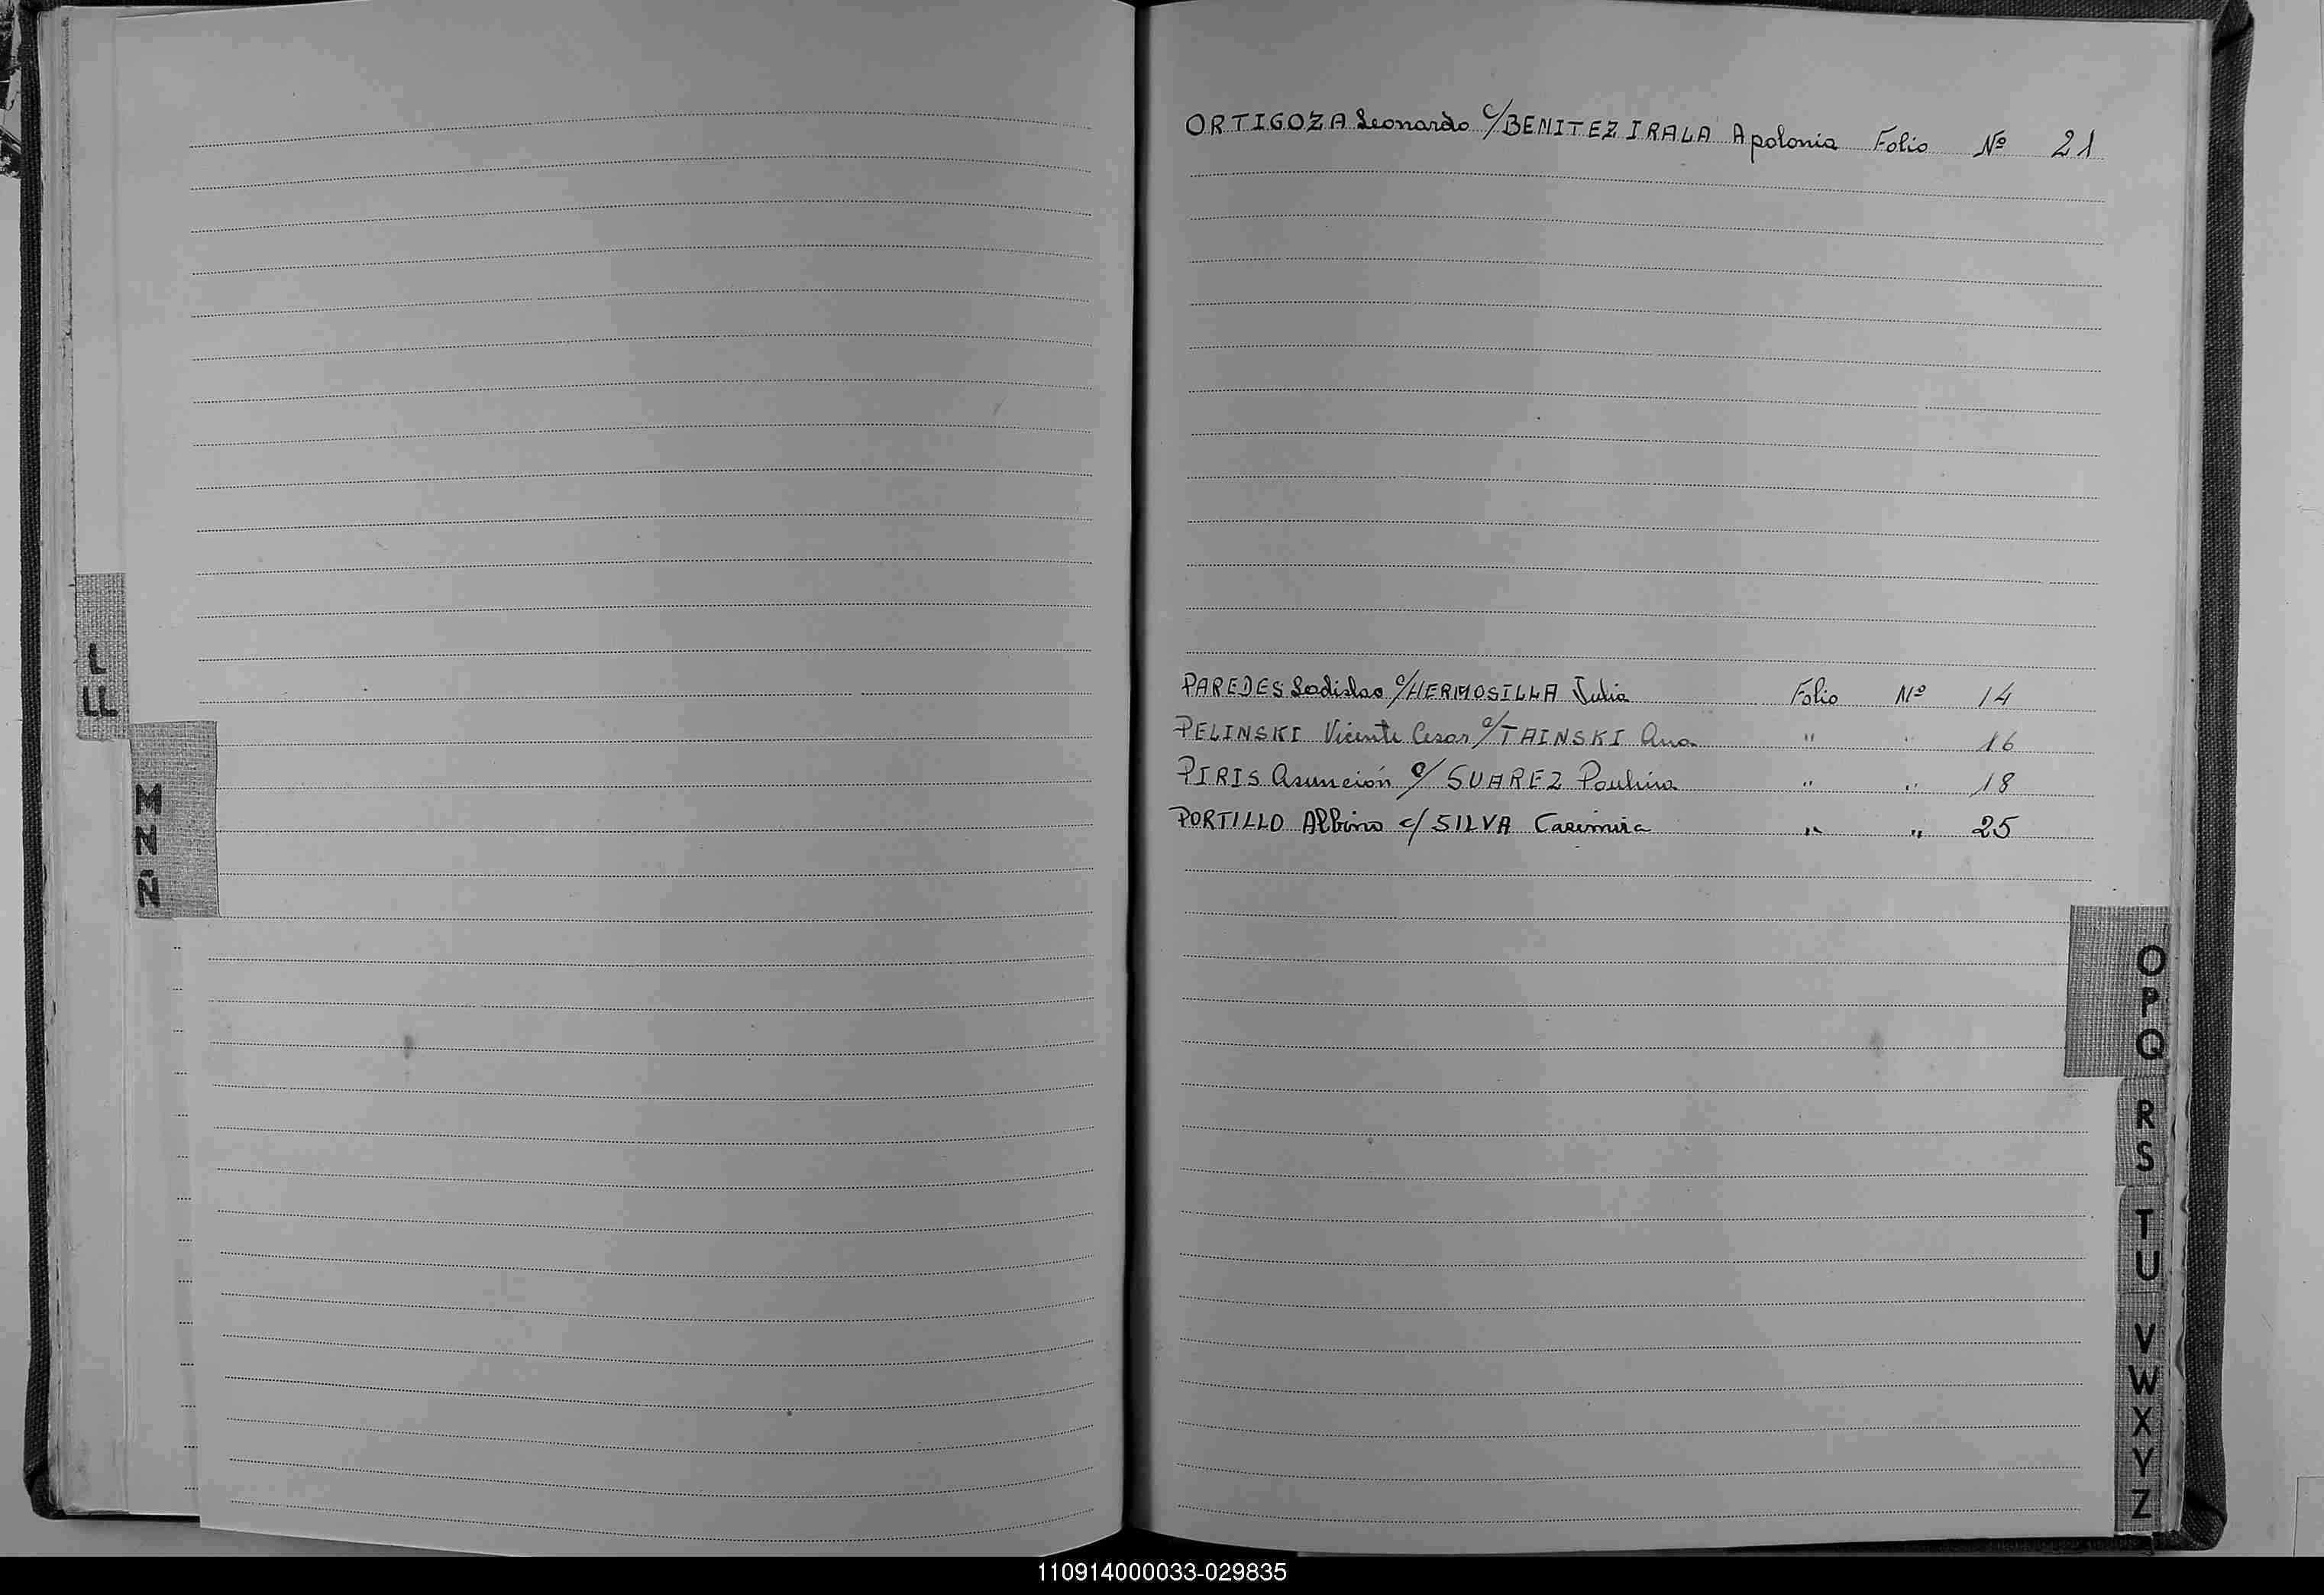 ORTIGOZA Leonardo c/ BENITEZ IRALA Apolonia Folio Nº 21
PAREDES Ladislao c/ HERMOSILLA Julia Folio Nº 14
PELINSKI Vicente Cesar c/ TAINSKI Ana " " 16
PIRIS Asunción c/ SUAREZ Paulina " " 18
PORTILLO Albino c/ SILVA Casimira " " 25
L
LL
M
N
Ñ
O
P
Q
R
S
T
U
V
W
X
Y
Z
110914000033-029835